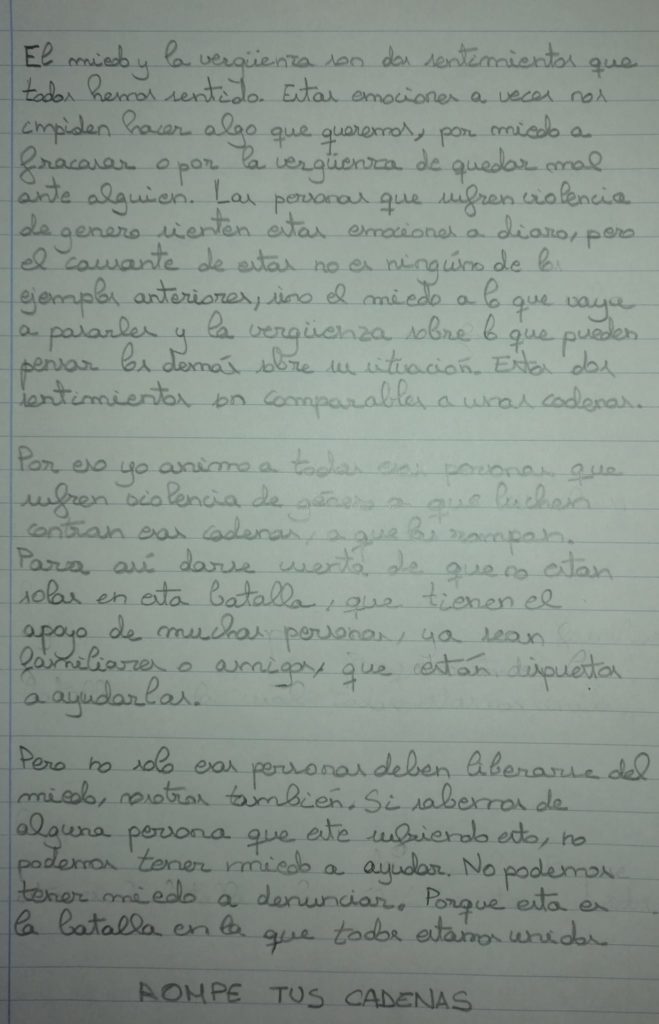 El miedo y la vergüenza son dos sentimientos que
todos hemos sentido. Estas emociones a veces nos
impiden hacer algo que queremos, por miedo a
fracasar o por la vergüenza de quedar mal
ante alguien. Las personas que sufren violencia
de genero sienten estas emociones a diaro, pero
el causante de estas no es ningúno de los
ejemplos anteriores, sino el miedo a lo que vaya
a pasarles y la vergüenza sobre lo que pueden
pensar los demás sobre su situación. Estos dos
sentimientos son comparables a unas cadenas.
Por eso yo animo a todas esas personas que
sufren violencia de género a que luchen
contran esas cadenas, a que las rompan.
Para así darse cuenta de que no estan
solas en esta batalla, que tienen el
apoyo de muchas personas, ya sean
familiares o amigos, que están dispuestos
a ayudarlas.
Pero no solo esas personas deben liberarse del
miedo, nosotros también. Si sabemos de
alguna persona que este sufriendo esto, no
podemos tener miedo a ayudar. No podemos
tener miedo a denunciar. Porque esta es
la batalla en la que todos estamos unidos
ROMPE TUS CADENAS